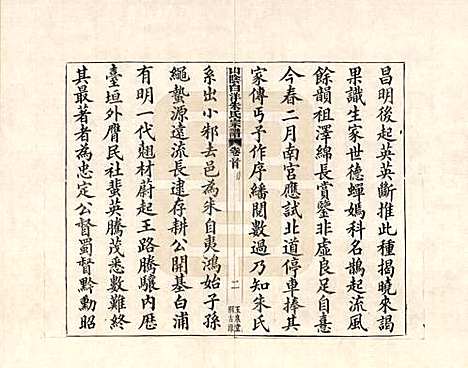 昌明後起英英斷推此種揭曉來謁
果識生家世德蟬嫣科名鵲起流風
餘韻祖澤綿長賞鑒非虛良足自憙
今春二月南宮應試北道停車捧其
家傳丐予作序繙閱數過乃知朱氏
山陰白洋朱氏宗譜 卷首
二
玉泉堂
系出小邾去邑為朱自夷鴻始子孫
繩蟄源遠流長逮存耕公開基白浦
有明一代翹材蔚起王路騰驤內歷
臺垣外膺民社蜚英騰茂悉數難終
其最著者為忠定公督蜀督黔勳昭